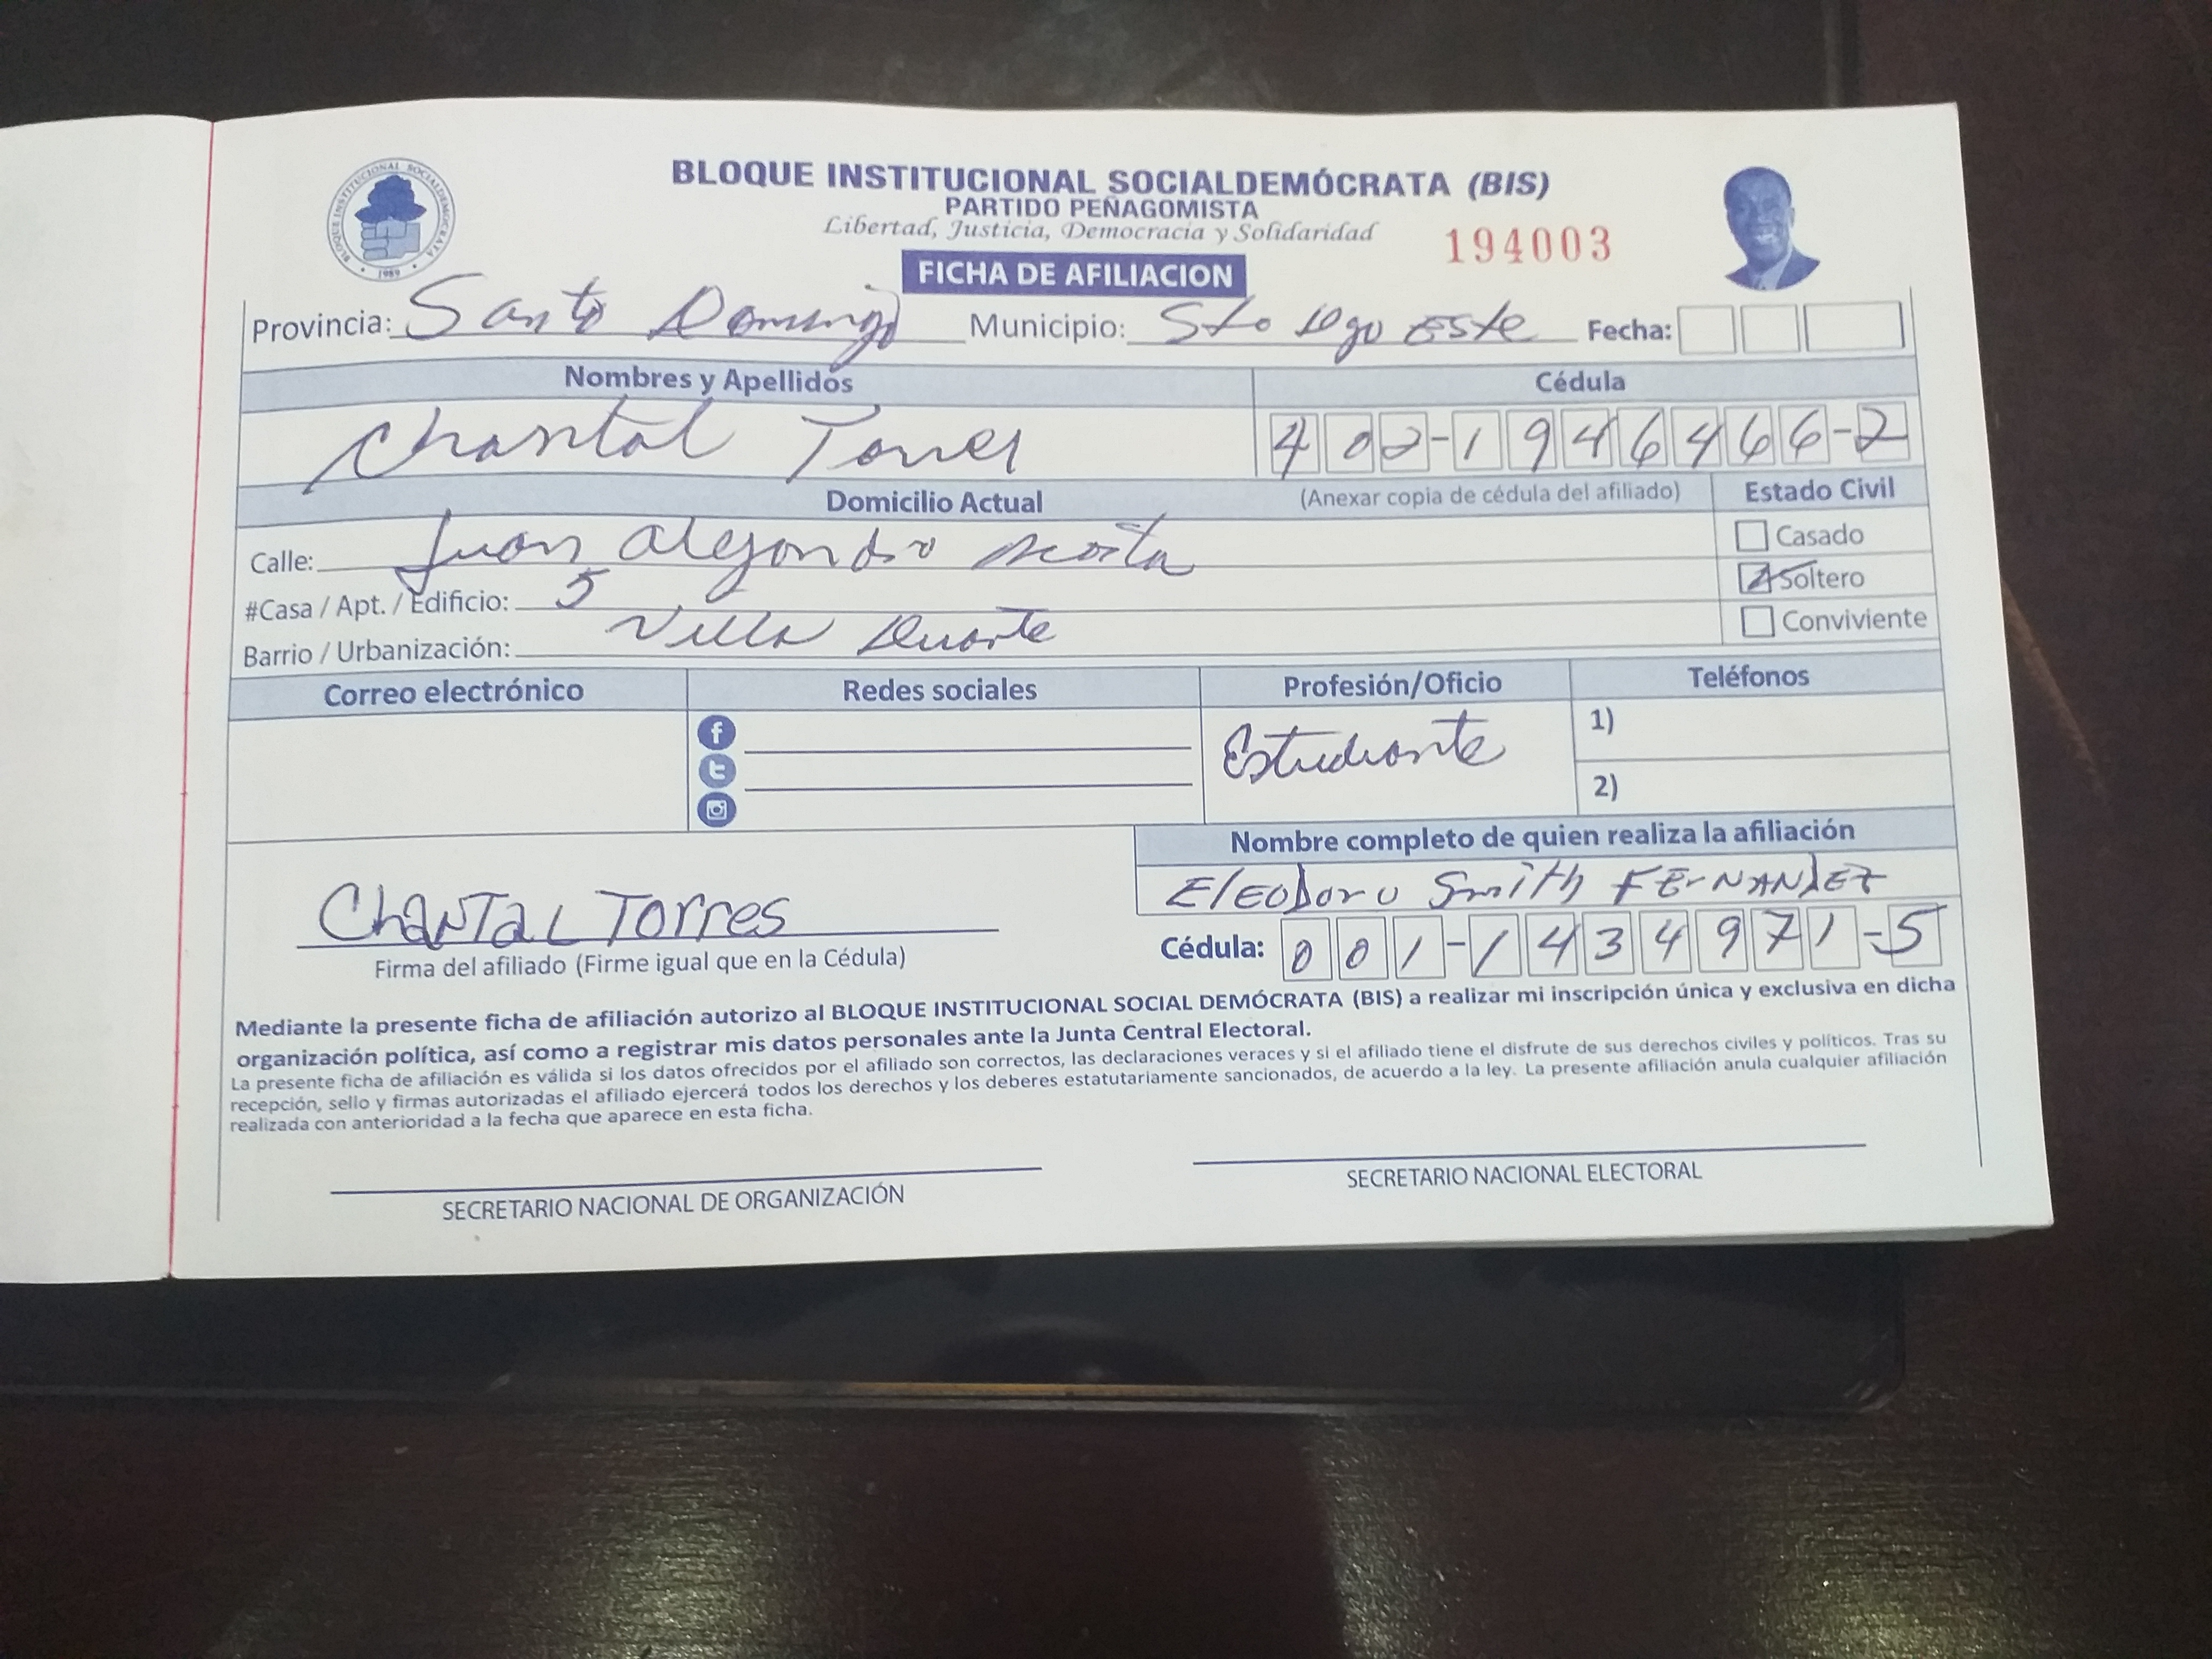 BLOQUE INSTITUCIONAL SOCIALDEMÓCRATA (BIS)
PARTIDO PEÑAGOMISTA
Libertad, Justicia, Democracia y Solidaridad
194003
BLOQUE INSTITUCIONAL SOCIALDEMOCRATA
1989
FICHA DE AFILIACION
Provincia: Santo Domingo Municipio: Sto Dgo Este Fecha:
Nombres y Apellidos Cédula
Chantal Torres 402-1946466-2
Domicilio Actual (Anexar copia de cédula del afiliado) Estado Civil
Calle: Juan Alejandro Acosta Casado
#Casa / Apt. / Edificio: 5 Soltero
Barrio / Urbanización: Villa Duarte Conviviente
Correo electrónico Redes sociales Profesión/Oficio Teléfonos
Estudiante 1)
2)
Nombre completo de quien realiza la afiliación
Eleodoro Smith FErNANdEZ
ChaNTaL Torres
Cédula: 001-1434971-5
Firma del afiliado (Firme igual que en la Cédula)
Mediante la presente ficha de afiliación autorizo al BLOQUE INSTITUCIONAL SOCIAL DEMÓCRATA (BIS) a realizar mi inscripción única y exclusiva en dicha
organización política, así como a registrar mis datos personales ante la Junta Central Electoral.
La presente ficha de afiliación es válida si los datos ofrecidos por el afiliado son correctos, las declaraciones veraces y si el afiliado tiene el disfrute de sus derechos civiles y políticos. Tras su
recepción, sello y firmas autorizadas el afiliado ejercerá todos los derechos y los deberes estatutariamente sancionados, de acuerdo a la ley. La presente afiliación anula cualquier afiliación
realizada con anterioridad a la fecha que aparece en esta ficha.
SECRETARIO NACIONAL DE ORGANIZACIÓN SECRETARIO NACIONAL ELECTORAL